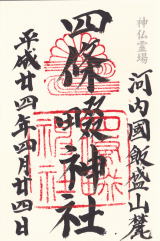 神仏霊場
河内國飯盛山麓
四條畷神社
平成廿四年四月廿四日